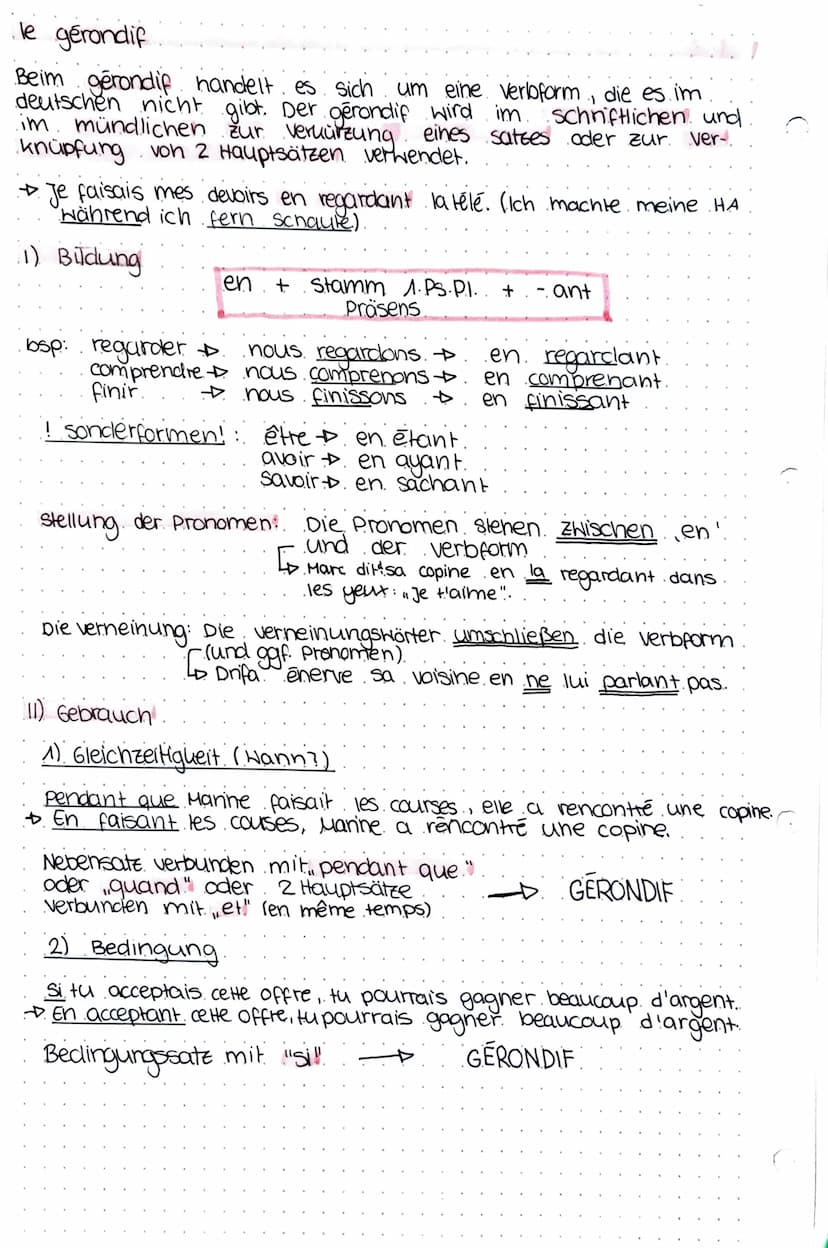 le gérondif
Beim gérondif handelt es sich um eine Verbform, die es im
deutschen nicht gibt. Der gérondif wird im schriftlichen und
im mündlichen zur Verkürzung eines Satzes oder zur Ver-
knüpfung von 2 Hauptsätzen verwendet.
→ Je faisais mes devoirs en regardant la télé. (Ich machte meine HA
während ich fern schaute)
I) Bildung
en + Stamm 1.Ps.Pl. + -ant
Präsens
bsp: regarder → nous regardons → en regardant
comprendre → nous comprenons → en comprenant
finir → nous finissons → en finissant
! Sonderformen! : être → en étant
avoir → en ayant
savoir → en sachant
Stellung der Pronomen: Die Pronomen stehen zwischen „en'
und der Verbform
↳ Marc dit sa copine en la regardant dans
les yeux: „Je t'aime".
Die Verneinung: Die Verneinungswörter umschließen die Verbform
(und ggf. Pronomen)
↳ Drifa énerve sa voisine en ne lui parlant pas.
II) Gebrauch
1) Gleichzeitigkeit (Wann?)
Pendant que Marine faisait les courses, elle a rencontré une copine.
→ En faisant les couses, Marine a réncontré une copine.
Nebensatz verbunden mit „pendant que"
oder „quand" oder 2 Hauptsätze → GÉRONDIF
verbunden mit „et" (en même temps)
2) Bedingung
Si tu acceptais cette offre, tu pourrais gagner beaucoup d'argent.
→ En acceptant cette offre, tu pourrais gagner beaucoup d'argent.
Bedingungssatz mit "si" → GÉRONDIF